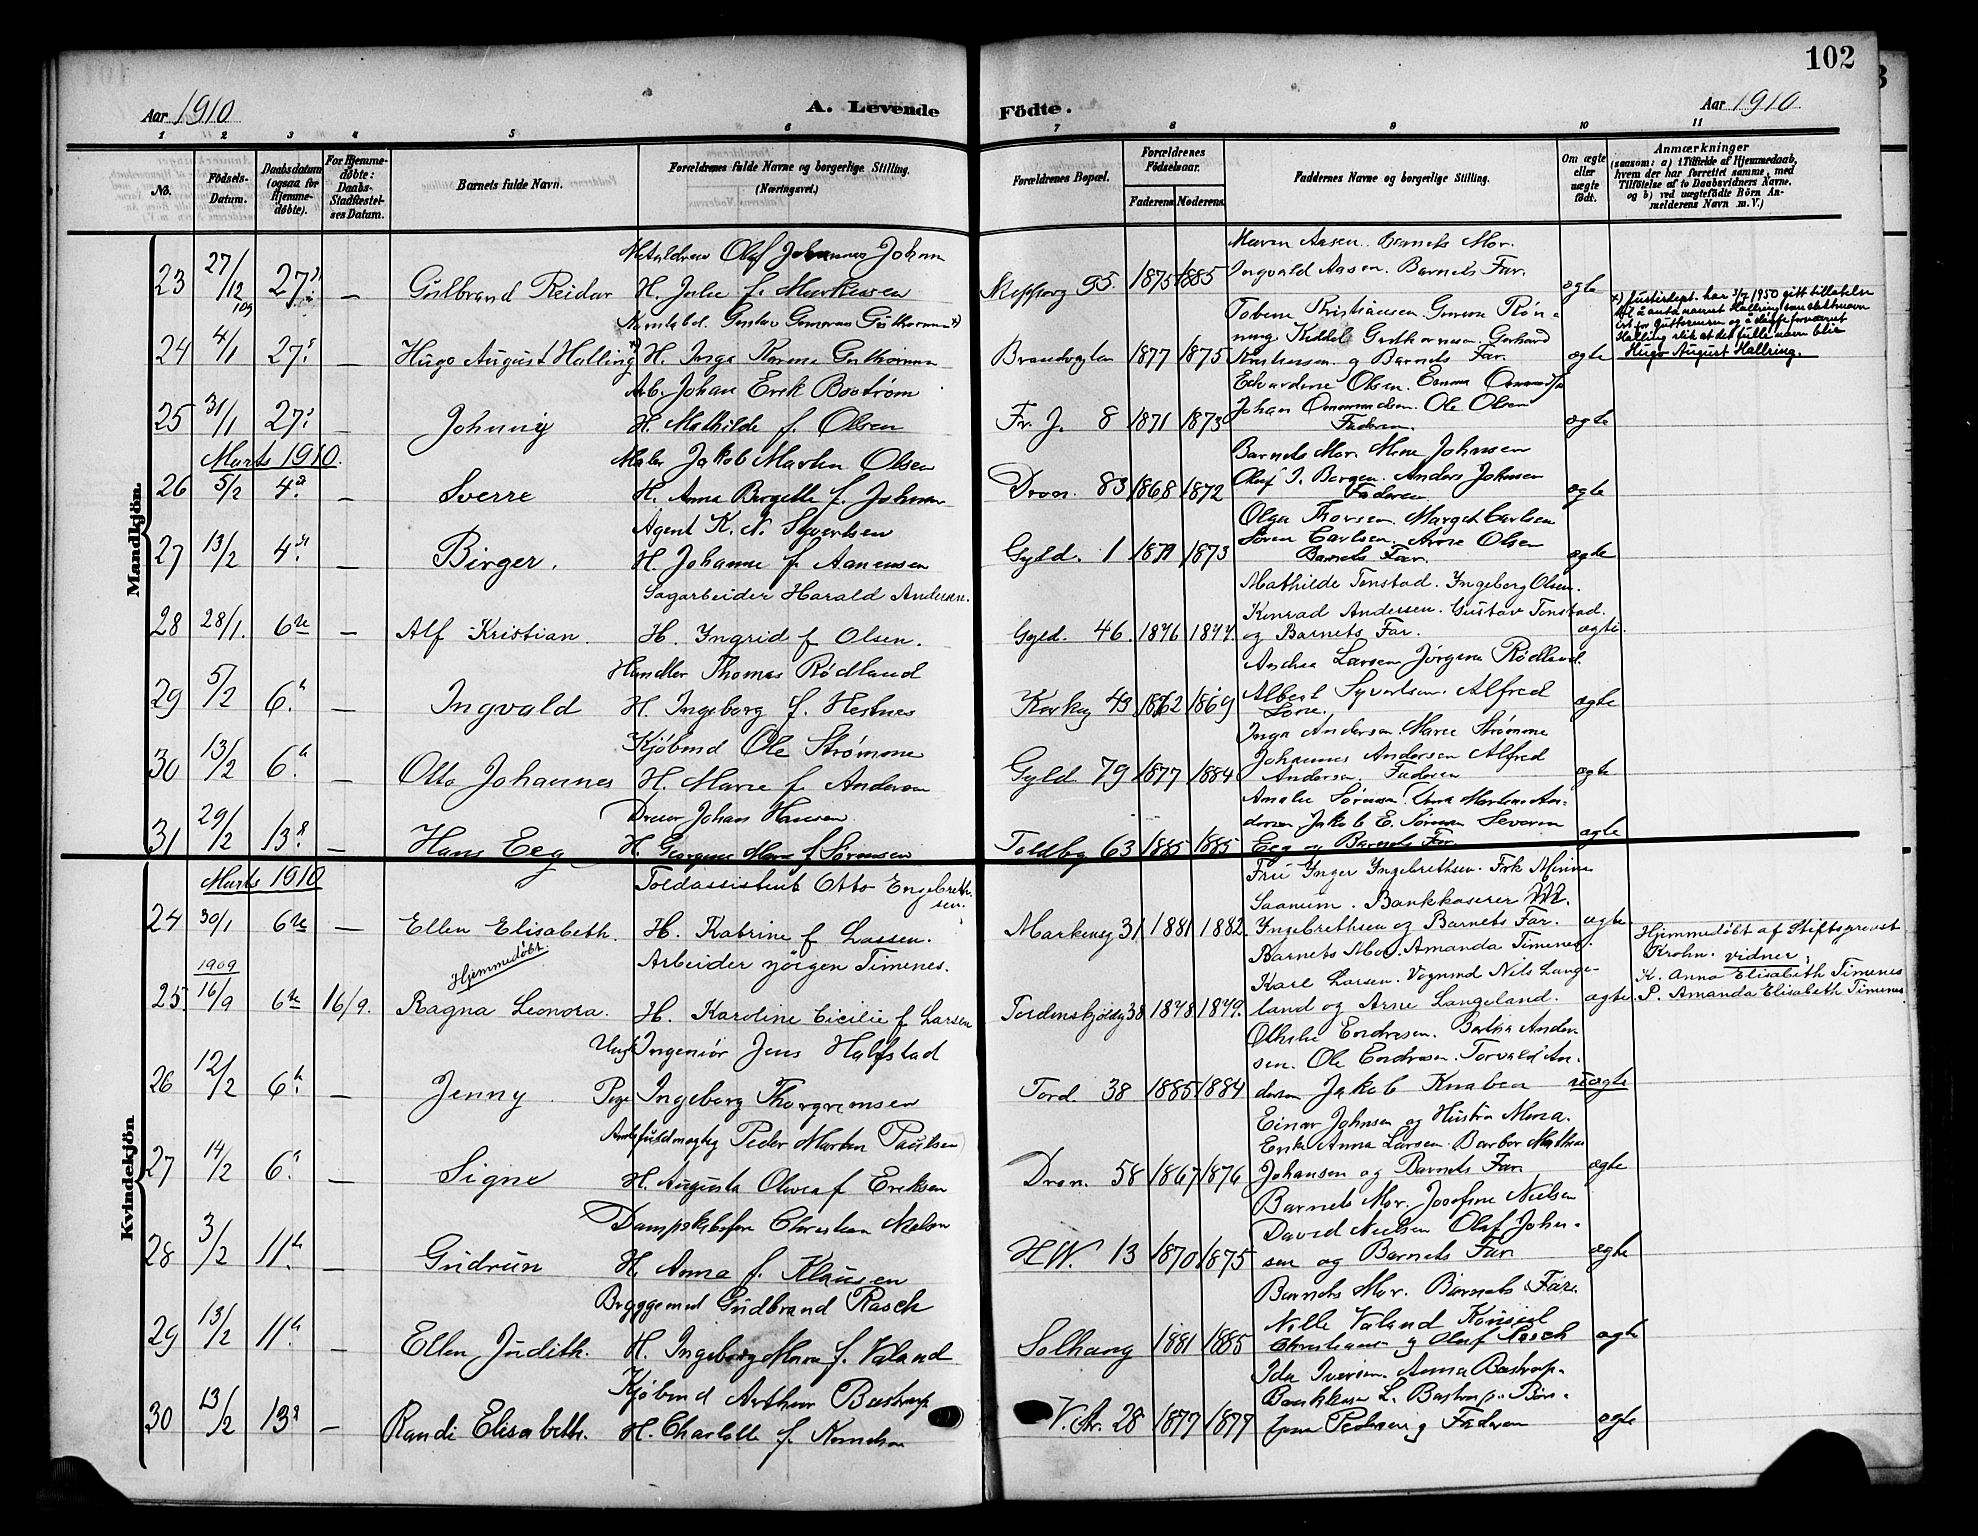 102
Aar 1910
A. Levende
Födte.
Aar 1910.
1 2 3 4 5 6 7 8 9 10 11
No.
Födsels-Datum.
Daabsdatum (ogsaa for Hjemme-döbte).
For Hjemme-döbte: Daabs-Stadfæstel-ses Datum.
Barnets fulde Navn.
Forældrenes fulde Navne og borgerlige Stilling. (Næringsvei.)
Forældrenes Bopæl.
Forældrenes Födselsaar.
Faderens Moderens
Faddernes Navne og borgerlige Stilling.
Om ægte eller uægte födt.
Anmærkninger
(saasom: a) i Tilfælde af Hjemmedaab,
hvem der har forrettet samme, med
Tilföielse af to Daabsvidners Navne.
og b) ved uægtefödte Börn An-
melderens Navn m. V.)
Mandkjön.
23 27/12 109 27 — Gulbrand Reidar
Olaf Johannes Johan
H. Julie f. Markussen
95. 1875 1885
Maren Aasen. Barnets Mor.
Ingvald Aasen. Barnets Far.
ægte
24 4/1 27 — Hugo August Halling x)
H. Inga
1877 1875
Tobine Kristiansen
og Barnets Far.
ægte
x) Justisdept. har 3/7 1950 gitt tillatelse
til å anta navnet Halling som slektsnavn
ist.for Guttormsen og å sløyfe fornavnet
Halling slik at det fulle navn blir
Hugo August Hallring.
25 31/1 27 — Johnny
Arb. Johan Erik Boström
H. Mathilde f. Olsen
Fr. J. 8 1871 1873
Edvardine Olsen. Emma
Johan Ommundsen. Ole Olsen
Faderen.
ægte
Marts 1910.
26 5/2 4 — Sverre
Maler Jakob Martin Olsen
H. Anna Bergette f. Johnsen
Dron. 83 1868 1872
Barnets Mor. Mine Johnsen
Oluf I. Bergen. Anders Johnsen
Faderen
ægte
27 13/2 4 — Birger.
Agent K. N. Syvertsen
H. Johanne f. Aanensen
Gyld. 1 1871 1873
Olga Thorsen. Marget Carlsen
Sören Carlsen. Arne Olsen
Barnets Far.
ægte
28 28/1. 6te — Alf Kristian
Sagarbeider Harald Andersen.
H. Ingrid f Olsen.
Gyld. 46. 1876 1877.
Mathilde Tonstad. Ingeborg Olsen.
Konrad Andersen. Gustav Tonstad.
og Barnets Far.
ægte.
29 5/2 6. — Ingvald
Handler Thomas Rødland
H. Ingeborg f. Hestnes
Kirkeg 43 1862 1869
Andrea Larsen Jörgine Rødland.
Albert Syvertsen. Alfred
ægte
30 13/2 6. — Otto Johannes
Kjöbmd Ole Strømme
H. Marie f. Andersen
Gyld 79 1877 1884
Inga Andersen Marie Strømme
Johannes Andersen Alfred
Andersen. Faderen
ægte
31 29/2 13 — Hans Eeg
Johan Hansen
H. Georgine Marie f Sörensen
Toldbg 63 1885 1885
Amalie Sörensen. Anna Martine An-
dersen Jakob E. Sörensen Severin
Eeg og Barnets Far.
ægte
Kvindekjön
Marts 1910
24 30/1 6te — Ellen Elisabeth.
Toldassistent Otto Engebreth
sen.
H. Katrine f Lassen.
Markensg 31 1881 1882
Fru Inger Ingebrethsen. Frk Minna
Saanum. Bankkaserer
Ingebrethsen og Barnets Far.
ægte.
1909
25. 16/9 6te 16/9. Ragna Leonora.
Hjemmedöbt.
Arbeider Jörgen Timenes.
H. Karoline Cicilie f Larsen
Tordenskjoldsg 38 1848 1849.
Barnets Mor. Amanda Timenes.
Kare Larsen. Vognmd Nils Lange-
land og Arne Langeland.
ægte.
Hjemmedöbt af Stiftsprovst
Krohn. vidner;
K. Anna Elisabeth Timenes
P. Amanda Elisabeth Timenes.
26 12/2 6. — Jenny
Ungk Ingeniør Jens Halfstad
Pige Ingeborg Thorgrimsen
Tord. 38 1885 1884
Endresen. Berthia Ander-
sen. Ole Endresen. Torvald An-
dersen Jakob Knaben
uægte
27 14/2 6. — Signe
Amtsfuldmægtig Peder Martin Paulsen
H. Augusta Olivia f Eriksen
Dron. 58 1867 1876
Einar Johnsen og Hustru Mina.
Enke Anna Larsen. Barbor Mathea
Johansen og Barnets Far
ægte
28 3/2 11. — Gudrun
Dampskibsfører Christian Nielsen
H. Anna f. Klausen
H.W. 13 1870 1875
Barnets Mor. Josefine Nielsen
David Nielsen Olaf John-
sen og Barnets Far
ægte
29 13/2 11. — Ellen Judith.
Bryggemed Gudbrand Rasch
H. Ingeborg Marie f. Valand
Solhaug 1881 1885
Barnets Mor. Barnets Far.
Nille Valand Konsul
Christiansen og Oluf Rasch
ægte
30 13/2 13 — Randi Elisabeth.
Kjöbmd Arthur Bastrup
H. Charlotte f.
V. Str. 28 1877 1877
Ida Iversen. Anna Bastrup.
L. Bastrup.
Pedersen og Faderen
ægte